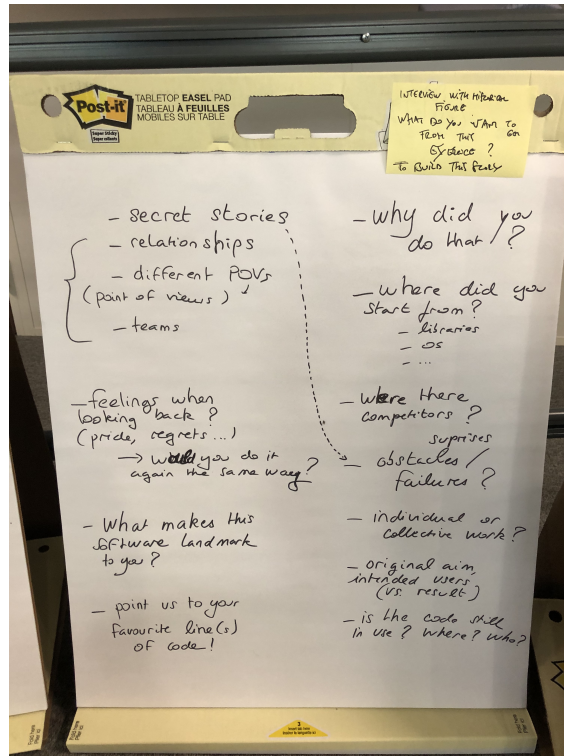 Post-it
Super Sticky
TABLETOP EASEL PAD
TABLEAU À FEUILLES
MOBILES SUR TABLE
INTERVIEW WITH
FIGURE
WHAT DO YOU WANT TO
FROM THIS
?
TO BUILD THIS STORY
- secret stories
- relationships
- different POVs
(point of views)
- teams
- feelings when
looking back?
(pride, regrets...)
→ would you do it
again the same way?
- What makes this
software landmark
to you?
- point us to your
favourite line(s)
of code!
- why did you
do that?
- where did you
start from?
- libraries
- OS
- ...
- Were there
competitors?
suprises
- obstacles /
failures?
- individual or
collective work?
- original aim,
intended users
(vs. result)
- is the code still
in use? where? who?
3